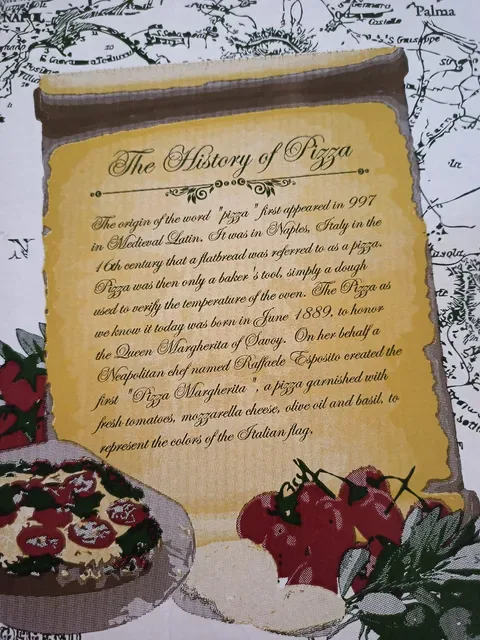 NAPOLI
Palma
S. Gennaro
Castello
S. Giuseppe
The History of Pizza
The origin of the word "pizza " first appeared in 997
in Medieval Latin. It was in Naples, Italy in the
16th century that a flatbread was referred to as a pizza.
Pizza was then only a baker's tool, simply a dough
used to verify the temperature of the oven. The Pizza as
we know it today was born in June 1889, to honor
the Queen Margherita of Savoy. On her behalf a
Neapolitan chef named Raffaele Esposito created the
first "Pizza Margherita ", a pizza garnished with
fresh tomatoes, mozzarella cheese, olive oil and basil, to
represent the colors of the Italian flag.